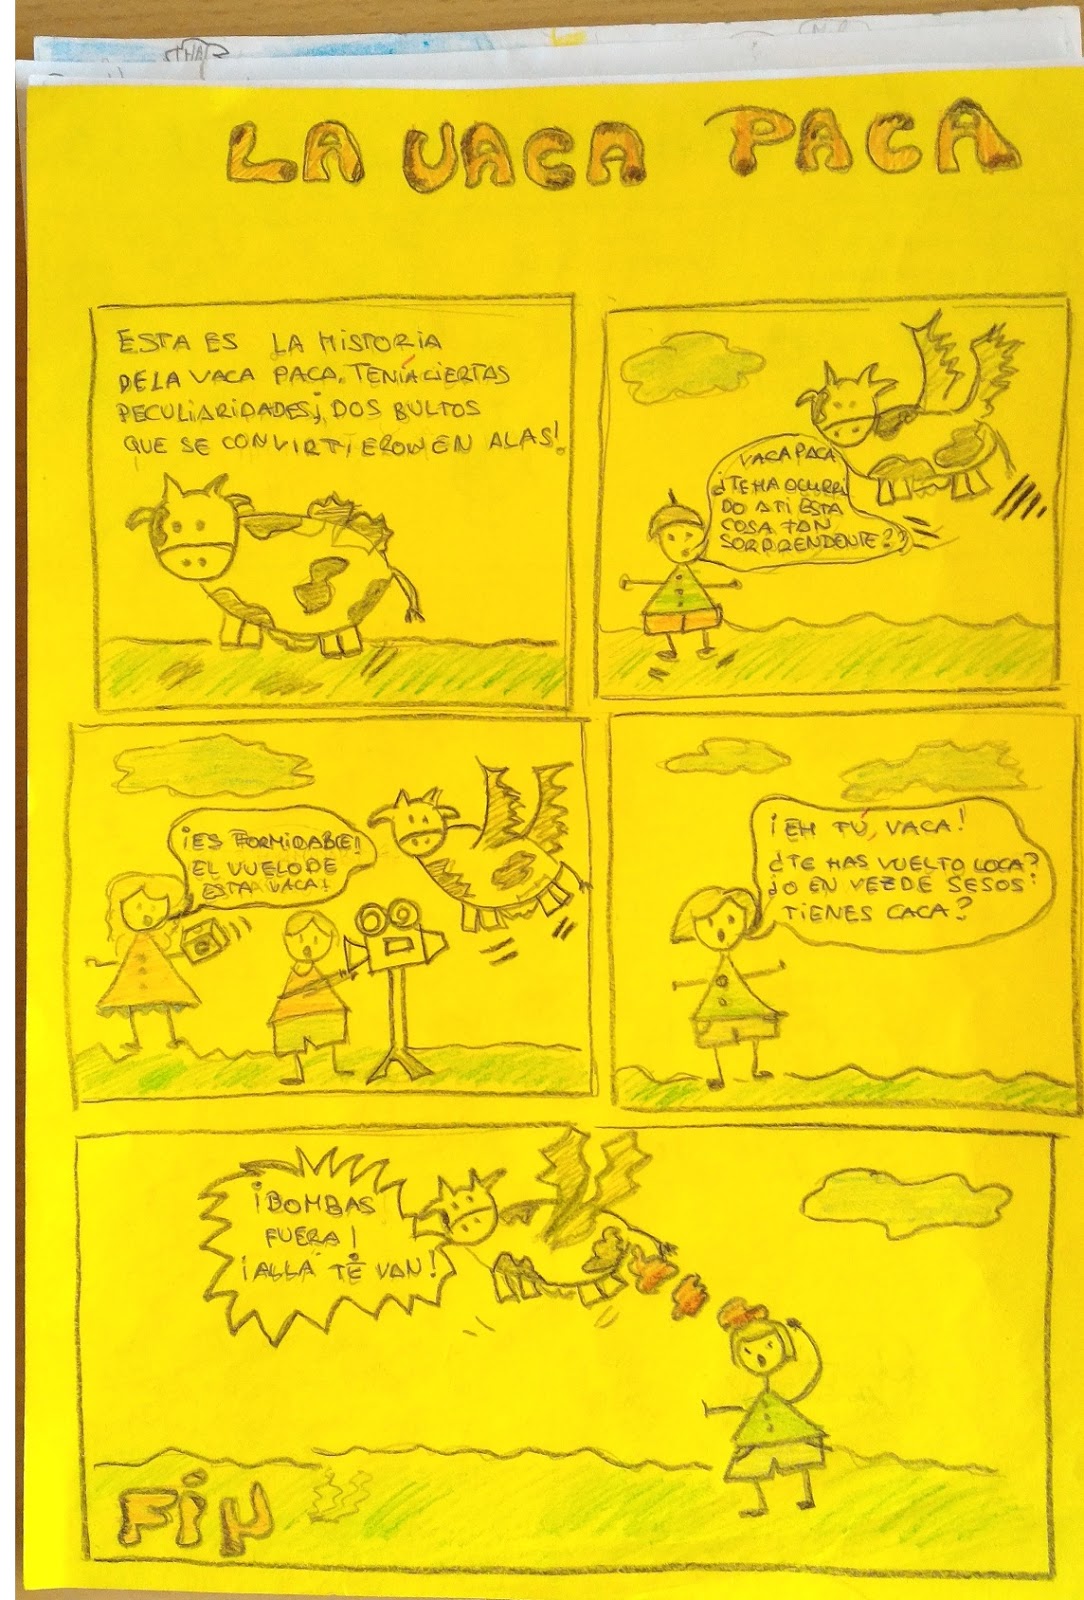 LA VACA PACA
ESTA ES LA HISTORIA
DE LA VACA PACA. TENÍA CIERTAS
PECULIARIDADES; DOS BULTOS
QUE SE CONVIRTIERON EN ALAS!
VACA PACA
¿TE HA OCURRI
DO A TI ESTA
COSA TAN
SORPRENDENTE??
¡ES FORMIDABLE!
EL VUELO DE
ESTA VACA!
¡EH TÚ, VACA!
¿TE HAS VUELTO LOCA?
¿O EN VEZ DE SESOS
TIENES CACA?
¡BOMBAS
FUERA!
¡ALLÁ TE VAN!
FiN